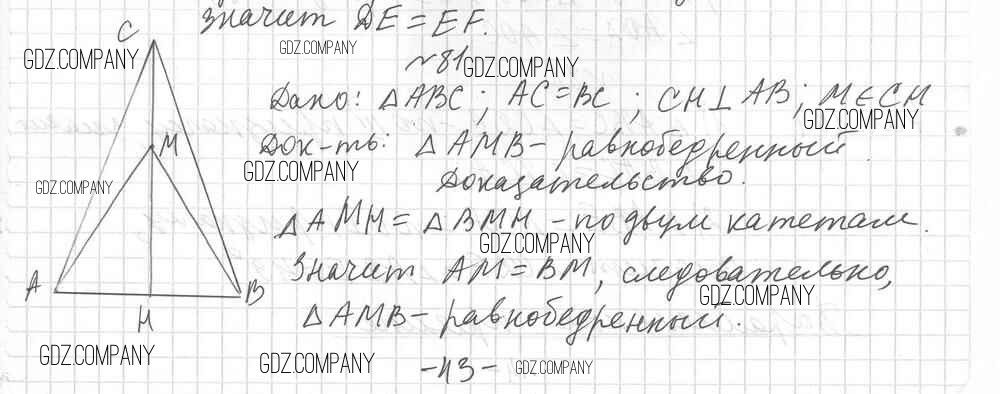 значит DE = EF.
GDZ.COMPANY
C
GDZ.COMPANY
№81 GDZ.COMPANY
Дано: △ABC; AC=BC; CH⊥AB; M∈CH
GDZ.COMPANY
M
Док-ть: △AMB – равнобедренный.
GDZ.COMPANY
Доказательство.
GDZ.COMPANY
△AMH = △BMH – по двум катетам.
GDZ.COMPANY
Значит AM = BM, следовательно,
A
B
GDZ.COMPANY
H
△AMB – равнобедренный.
GDZ.COMPANY
GDZ.COMPANY
-43-
GDZ.COMPANY